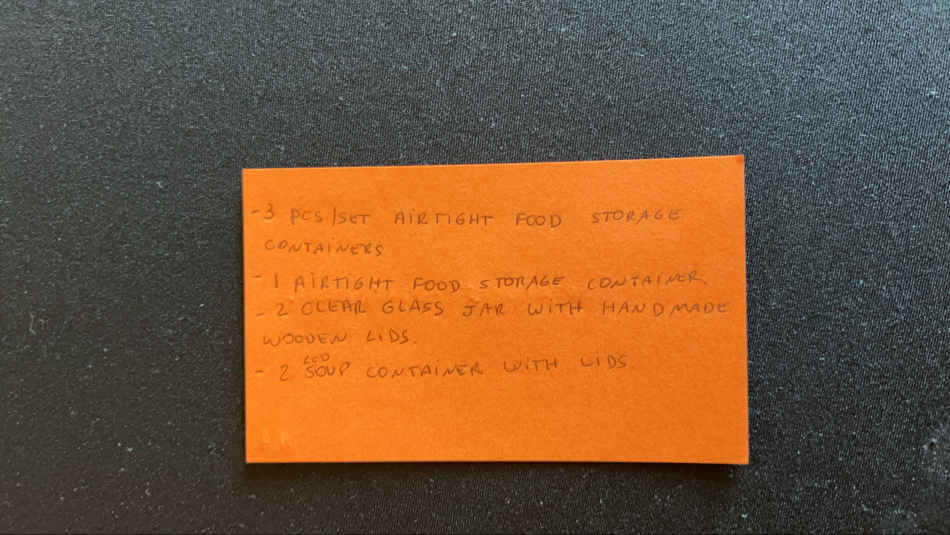 - 3 PCS/SET AIRTIGHT FOOD STORAGE
CONTAINERS
- 1 AIRTIGHT FOOD STORAGE CONTAINER.
- 2 CLEAR GLASS JAR WITH HANDMADE
WOODEN LIDS.
LCD
- 2 SOUP CONTAINER WITH LIDS.